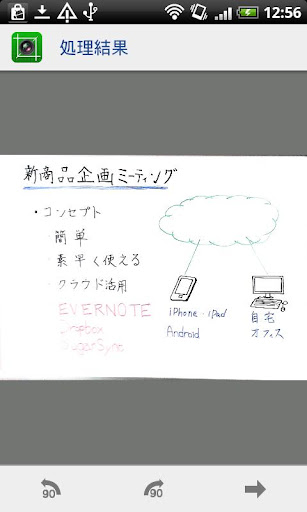 12:56
処理結果
新商品企画ミーティング
・コンセプト
簡単
・素早く使える
・クラウド活用
EVERNOTE
Dropbox
SugarSync
iPhone・iPad
Android
自宅
オフィス
90
90